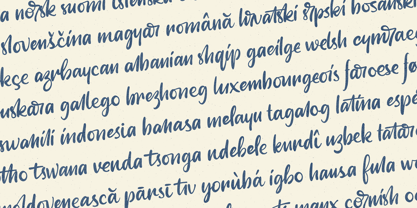 a norsk suomi
slovenščina magyar română hrvatski srpski bosanski
azərbaycan albanian shqip gaeilge welsh cymraeg
euskara gallego brezhoneg luxembourgeois føroese
swahili indonesia bahasa melayu tagalog latina
tswana venda tsonga ndebele kurdî uzbek
moldovenească pārsī tiv yorùbá igbo hausa fula
manx cornish